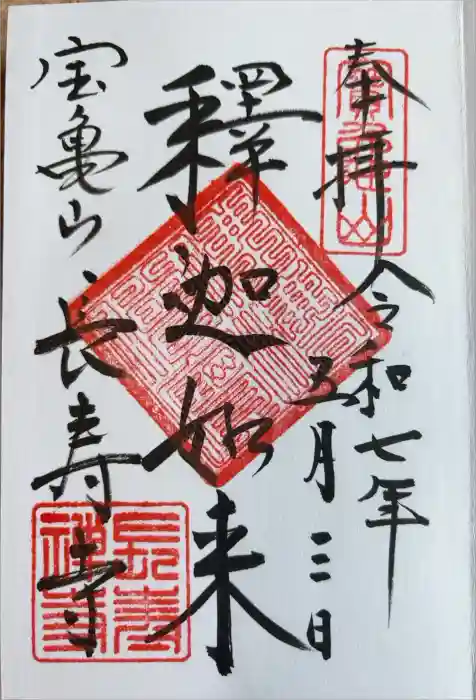 奉拝
令和七年
五月三日
釋迦如来
宝亀山
長寿寺
長壽禅寺